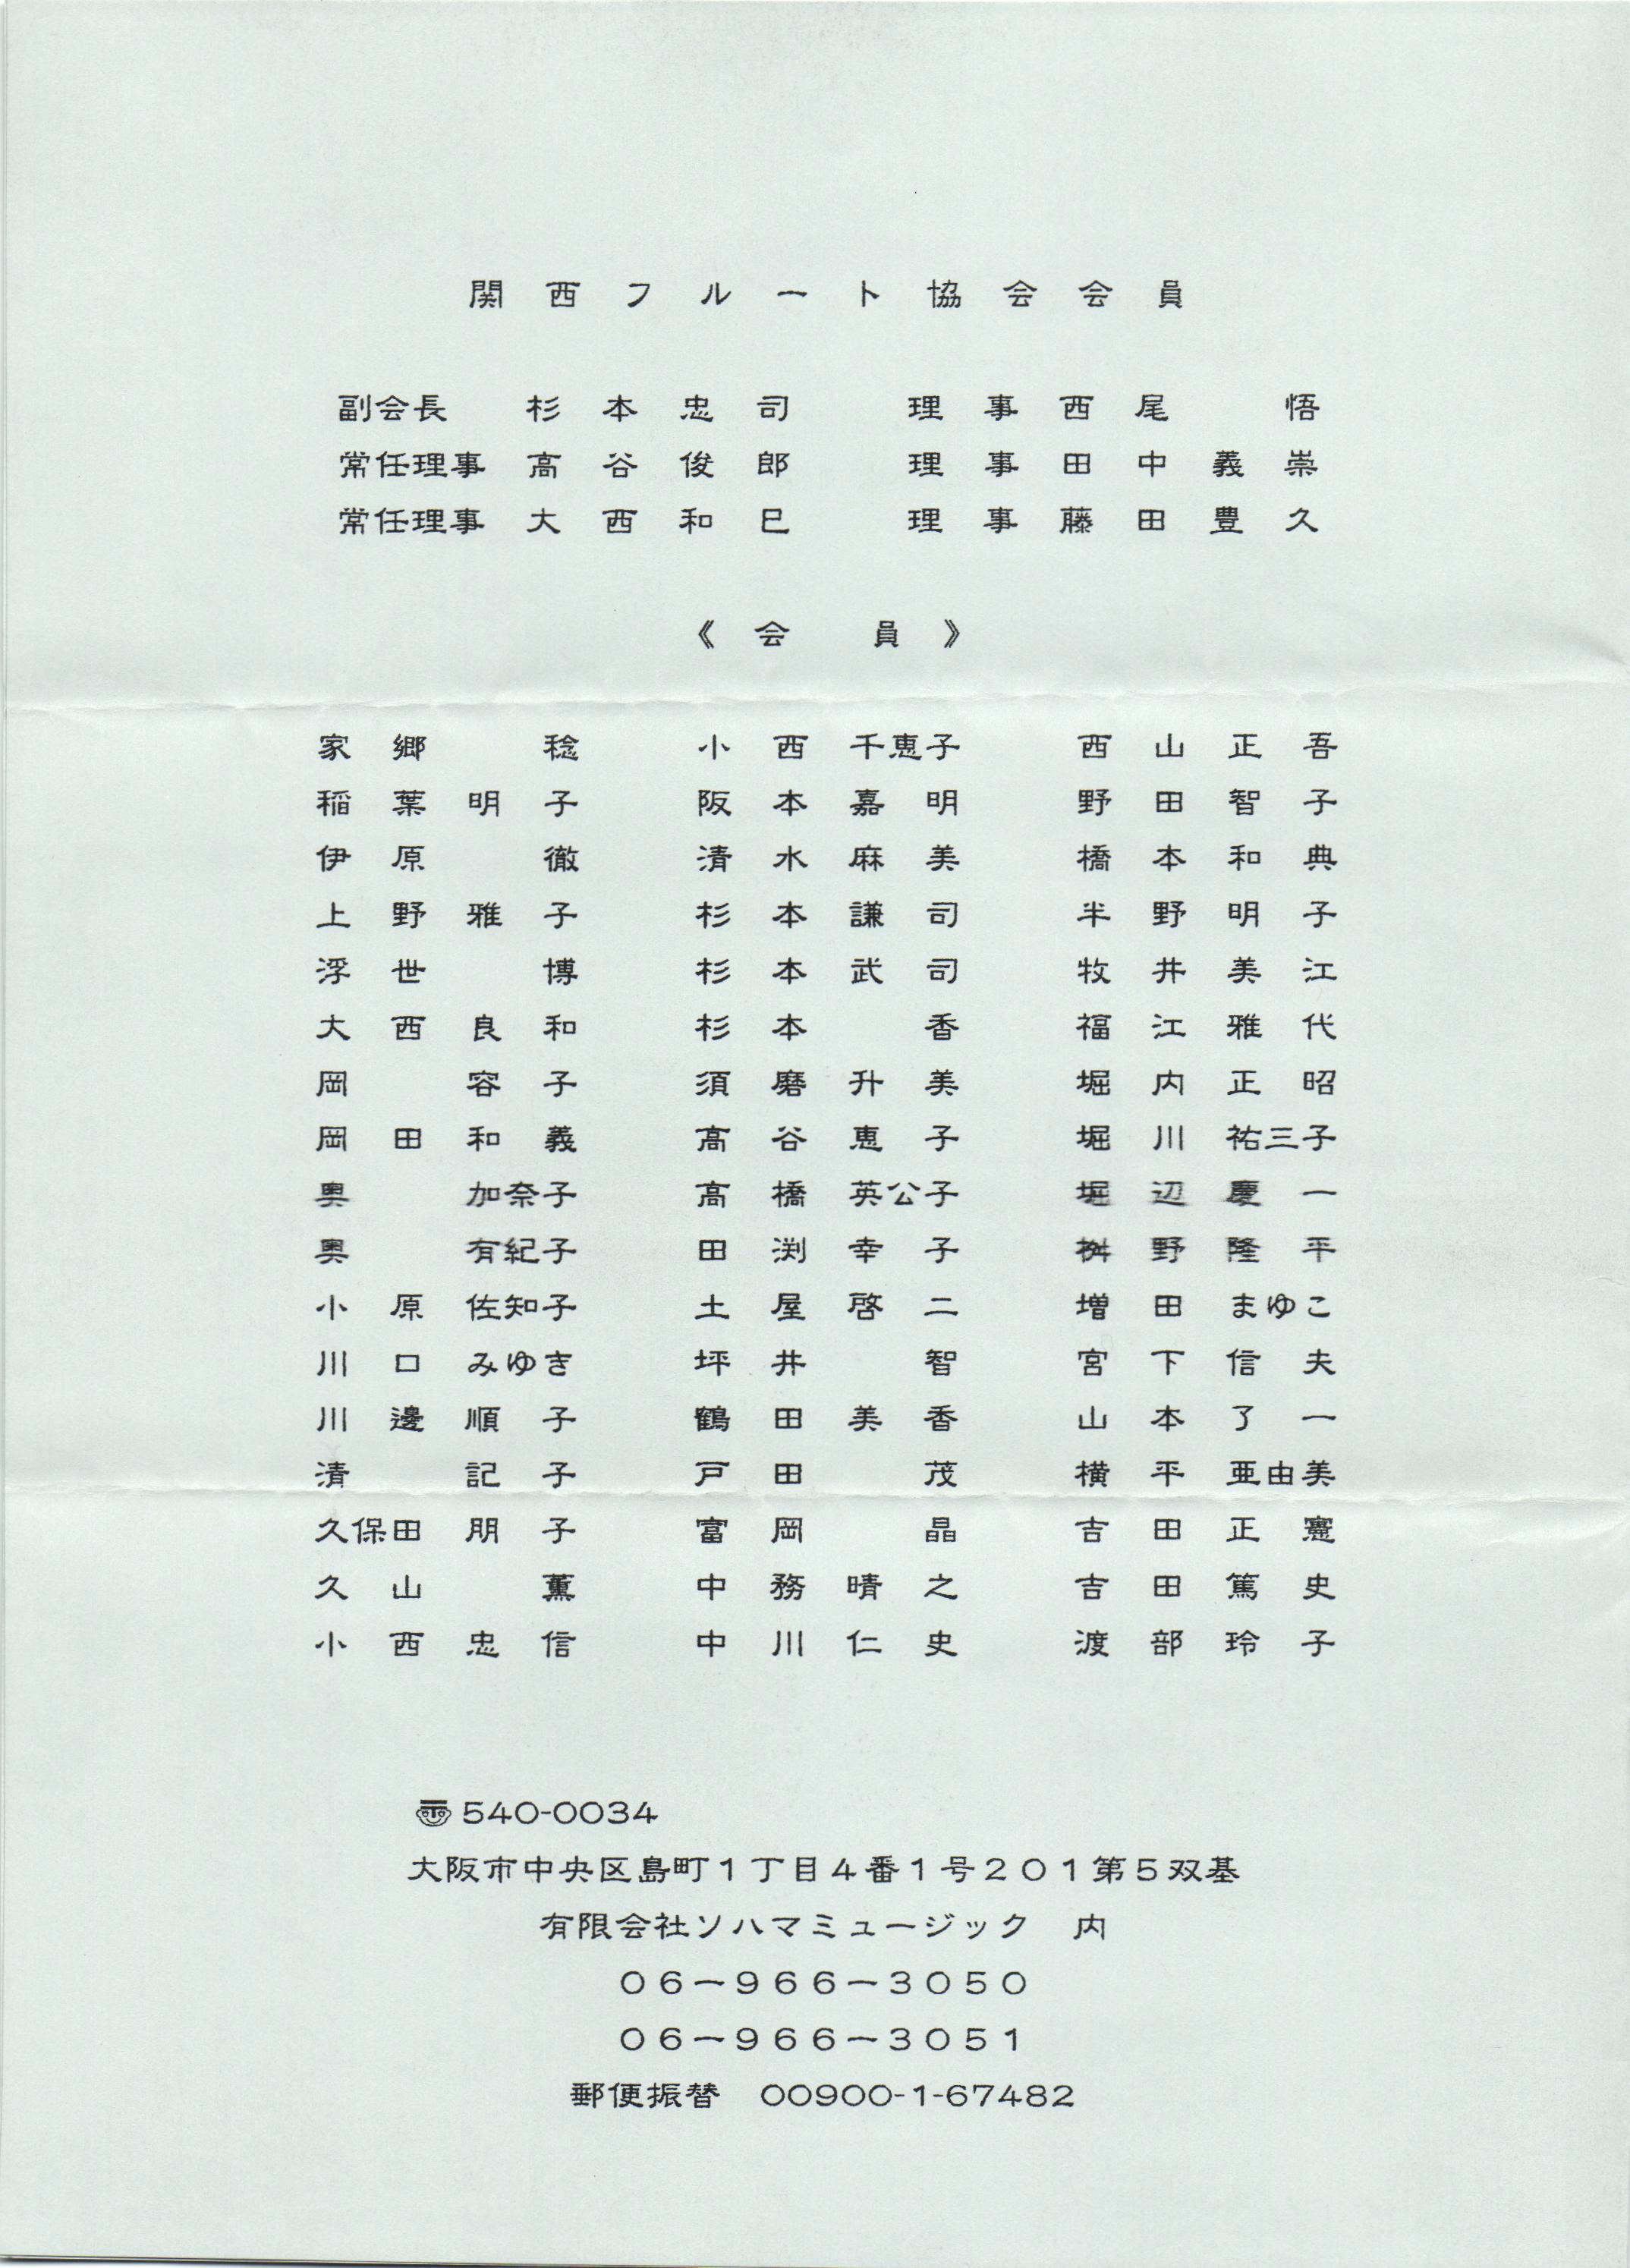 関西フルート協会会員
副会長 杉本忠司 理事 西尾 悟
常任理事 高谷俊郎 理事 田中義崇
常任理事 大西和巳 理事 藤田豊久
《会 員》
家郷 稔 小西千恵子 西山正吾
稲葉明子 阪本嘉明 野田智子
伊原 徹 清水麻美 橋本和典
上野雅子 杉本謙司 半野明子
浮世 博 杉本武司 牧井美江
大西良和 杉本 香 福江雅代
岡 容子 須磨升美 堀内正昭
岡田和義 高谷恵子 堀川祐三子
奥 加奈子 高橋英公子 堀辺慶一
奥 有紀子 田渕幸子 桝野隆平
小原佐知子 土屋啓二 増田まゆこ
川口みゆき 坪井 智 宮下信夫
川邊順子 鶴田美香 山本了一
清 記子 戸田 茂 横平亜由美
久保田朋子 富岡 晶 吉田正憲
久山 薫 中務晴之 吉田篤史
小西忠信 中川仁史 渡部玲子
〠540-0034
大阪市中央区島町１丁目４番１号２０１第５双基
有限会社ソハマミュージック 内
０６－９６６－３０５０
０６－９６６－３０５１
郵便振替 00900-1-67482